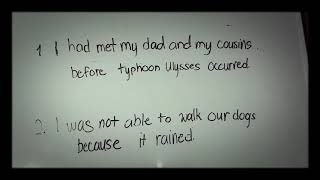 1. I had met my dad and my cousins
before typhoon Ulysses occurred
2. I was not able to walk our dogs
because it rained.